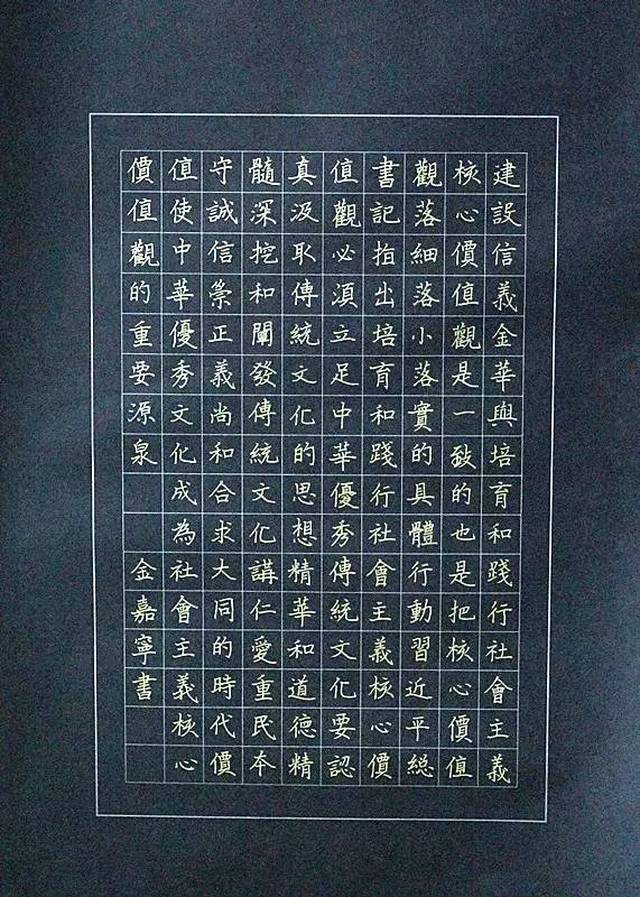 建設信義金華與培育和踐行社會主義
核心價值觀是一致的也是把核心價值
觀落細落小落實的具體行動習近平総
書記指出培育和踐行社會主義核心價
值觀必須立足中華優秀傳統文化要認
真汲取傳統文化的思想精華和道德精
髓深挖和闡發傳統文化講仁愛重民本
守誠信崇正義尚和合求大同的時代價
值使中華優秀文化成為社會主義核心
價值觀的重要源泉
金嘉寧書